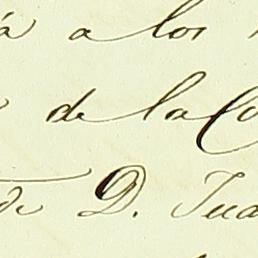 a los
de la Co
de D. Jua